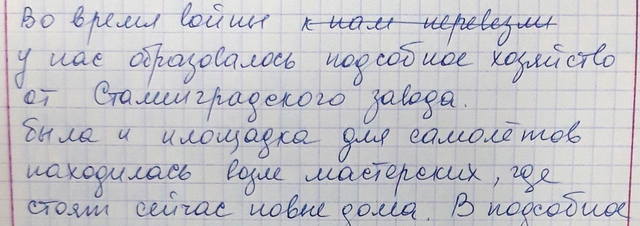 Во время войны к нам перевезли
у нас образовалось подсобное хозяйство
от Сталинградского завода.
была и площадка для самолётов
находилась возле мастерских, где
стоят сейчас новые дома. В подсобное